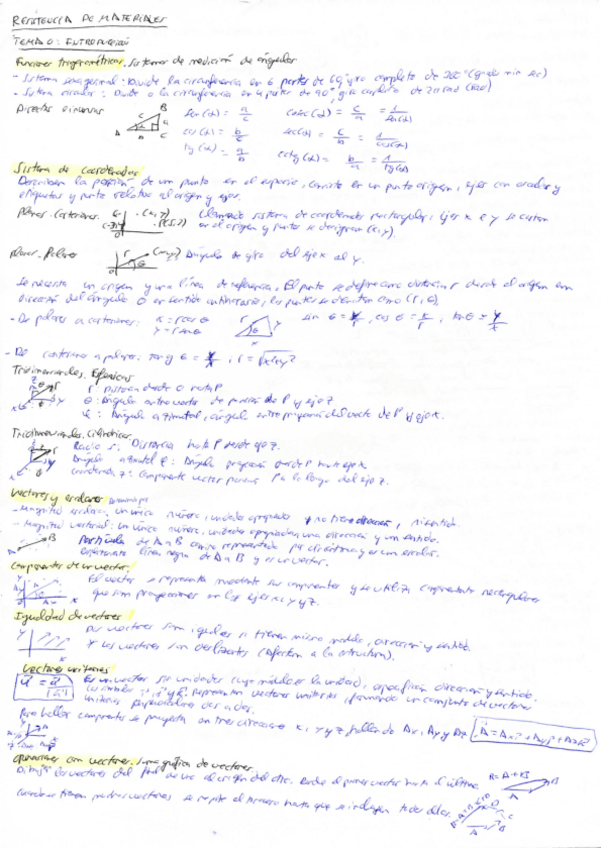 RESISTENCIA DE MATERIALES
TEMA 0: INTRODUCCIÓN
Funciones trigonométricas. Sistemas de medición de ángulos
- Sistema sexagesimal: Divide la circunferencia en 6 partes de 60º, giro completo de 360º (grados min sec)
- Sistema circular: Divide la circunferencia en 4 partes de 90º, giro completo de 2π rad (rad)
Directas e inversas
B
c
a
A b C
sen(α) = a/c cosec(α) = c/a = 1/sen(α)
cos(α) = b/c sec(α) = c/b = 1/cos(α)
tg(α) = a/b cotg(α) = b/a = 1/tg(α)
Sistema de coordenadas
Describen la posición de un punto en el espacio, consiste en un punto origen, ejes con escalas y
etiquetas y punto relativo al origen y ejes.
Planas. Cartesianas. (x, y) Llamado sistema de coordenadas rectangular, ejes x e y se cortan
en el origen y puntos se designan (x, y).
Planas. Polares (x, y) Ángulo de giro del eje x al y.
Se necesita un origen y una línea de referencia. El punto se define como distancia r desde el origen en
dirección del ángulo θ en sentido antihorario, los puntos se denotan como (r, θ).
- De polares a cartesianas: x = r cos θ
y = r sen θ
sin θ = y/r, cos θ = x/r, tan θ = y/x
- De cartesianas a polares: tan θ = y/x ; r = √x²+y²
Tridimensionales. Esféricas
r: Distancia desde O hasta P
θ: Ángulo entre vector de posición de P y eje z
φ: Ángulo azimutal, ángulo entre proyección del vector de P y eje x.
Tridimensionales. Cilíndricas
Radio s: Distancia hasta P desde eje z.
Ángulo azimutal φ: Ángulo proyección desde P hasta eje x.
Coordenada z: Componente vector posición P a lo largo del eje z.
Vectores y escalares
- Magnitud escalar: un único número, unidad apropiada y no tiene dirección, ni sentido.
- Magnitud vectorial: un único número, unidades apropiadas, una dirección y un sentido.
Partícula de A a B camino representado por distancia y es un escalar.
línea negra de A a B y es un vector.
Componentes de un vector.
El vector se representa mediante sus componentes y se utiliza componentes rectangulares
que son proyecciones en los ejes x, y y z.
Igualdad de vectores
Dos vectores son iguales si tienen mismo módulo, dirección y sentido.
Y los vectores son deslizantes (Afectan a la estructura).
Vectores unitarios
Es un vector sin unidades cuyo módulo es la unidad, especifican dirección y sentido.
Los símbolos i, j y k representan vectores unitarios, formando un conjunto de vectores
unitarios perpendiculares dos a dos.
Para hallar componentes se proyecta en tres direcciones x, y y z hallan Ax, Ay y Az. A = Ax i + Ay j + Az k
Operaciones con vectores. Suma gráfica de vectores
Dibujar los vectores del final de uno al origen del otro. Desde el primer vector hasta el último. R = A + B
Cuando se tienen muchos vectores se repite el proceso hasta que se incluyen todos ellos.